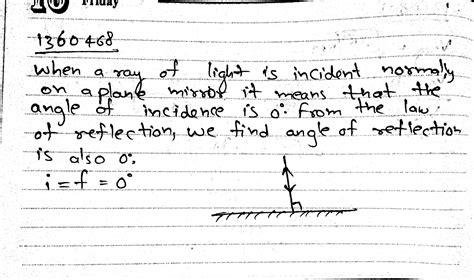 Friday
1360468
When a ray of light is incident normally
on a plane mirror it means that the
angle of incidence is 0°. From the law
of reflection, we find angle of reflection
is also 0°.
i = f = 0°